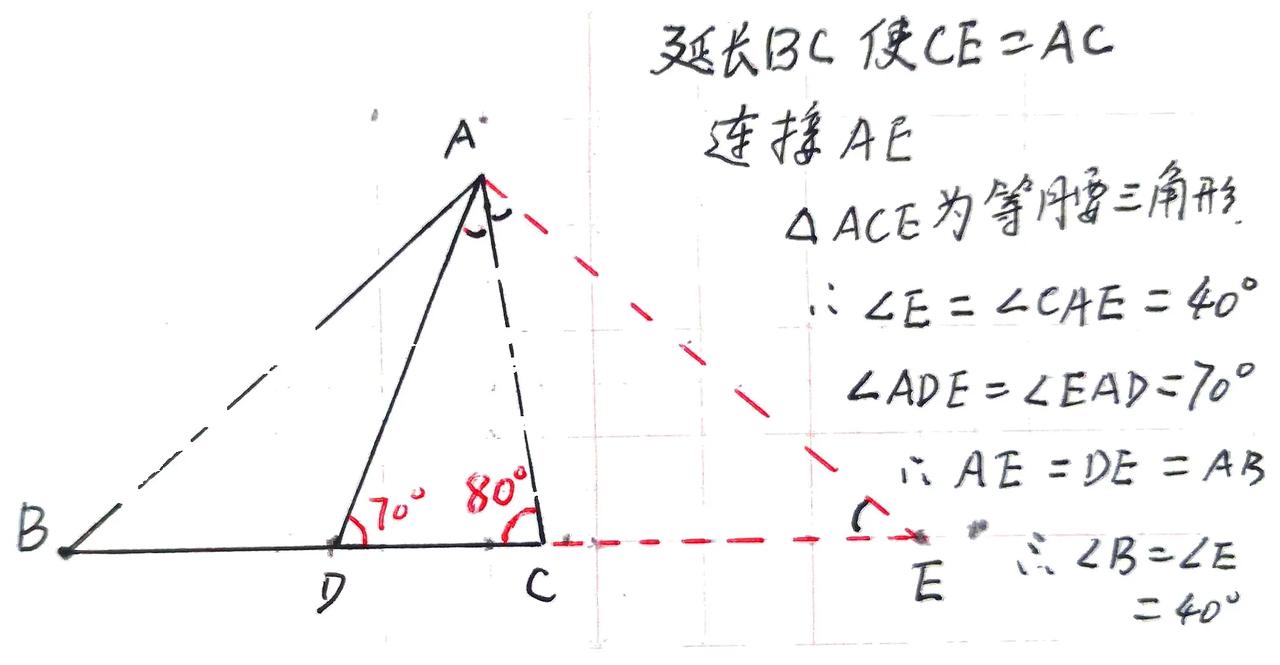 延长BC 使CE=AC
连接AE
△ACE为等腰三角形.
∴ ∠E=∠CAE=40°
∠ADE=∠EAD=70°
∴ AE=DE=AB
∴ ∠B=∠E
=40°
A
B
70°
80°
D
C
E